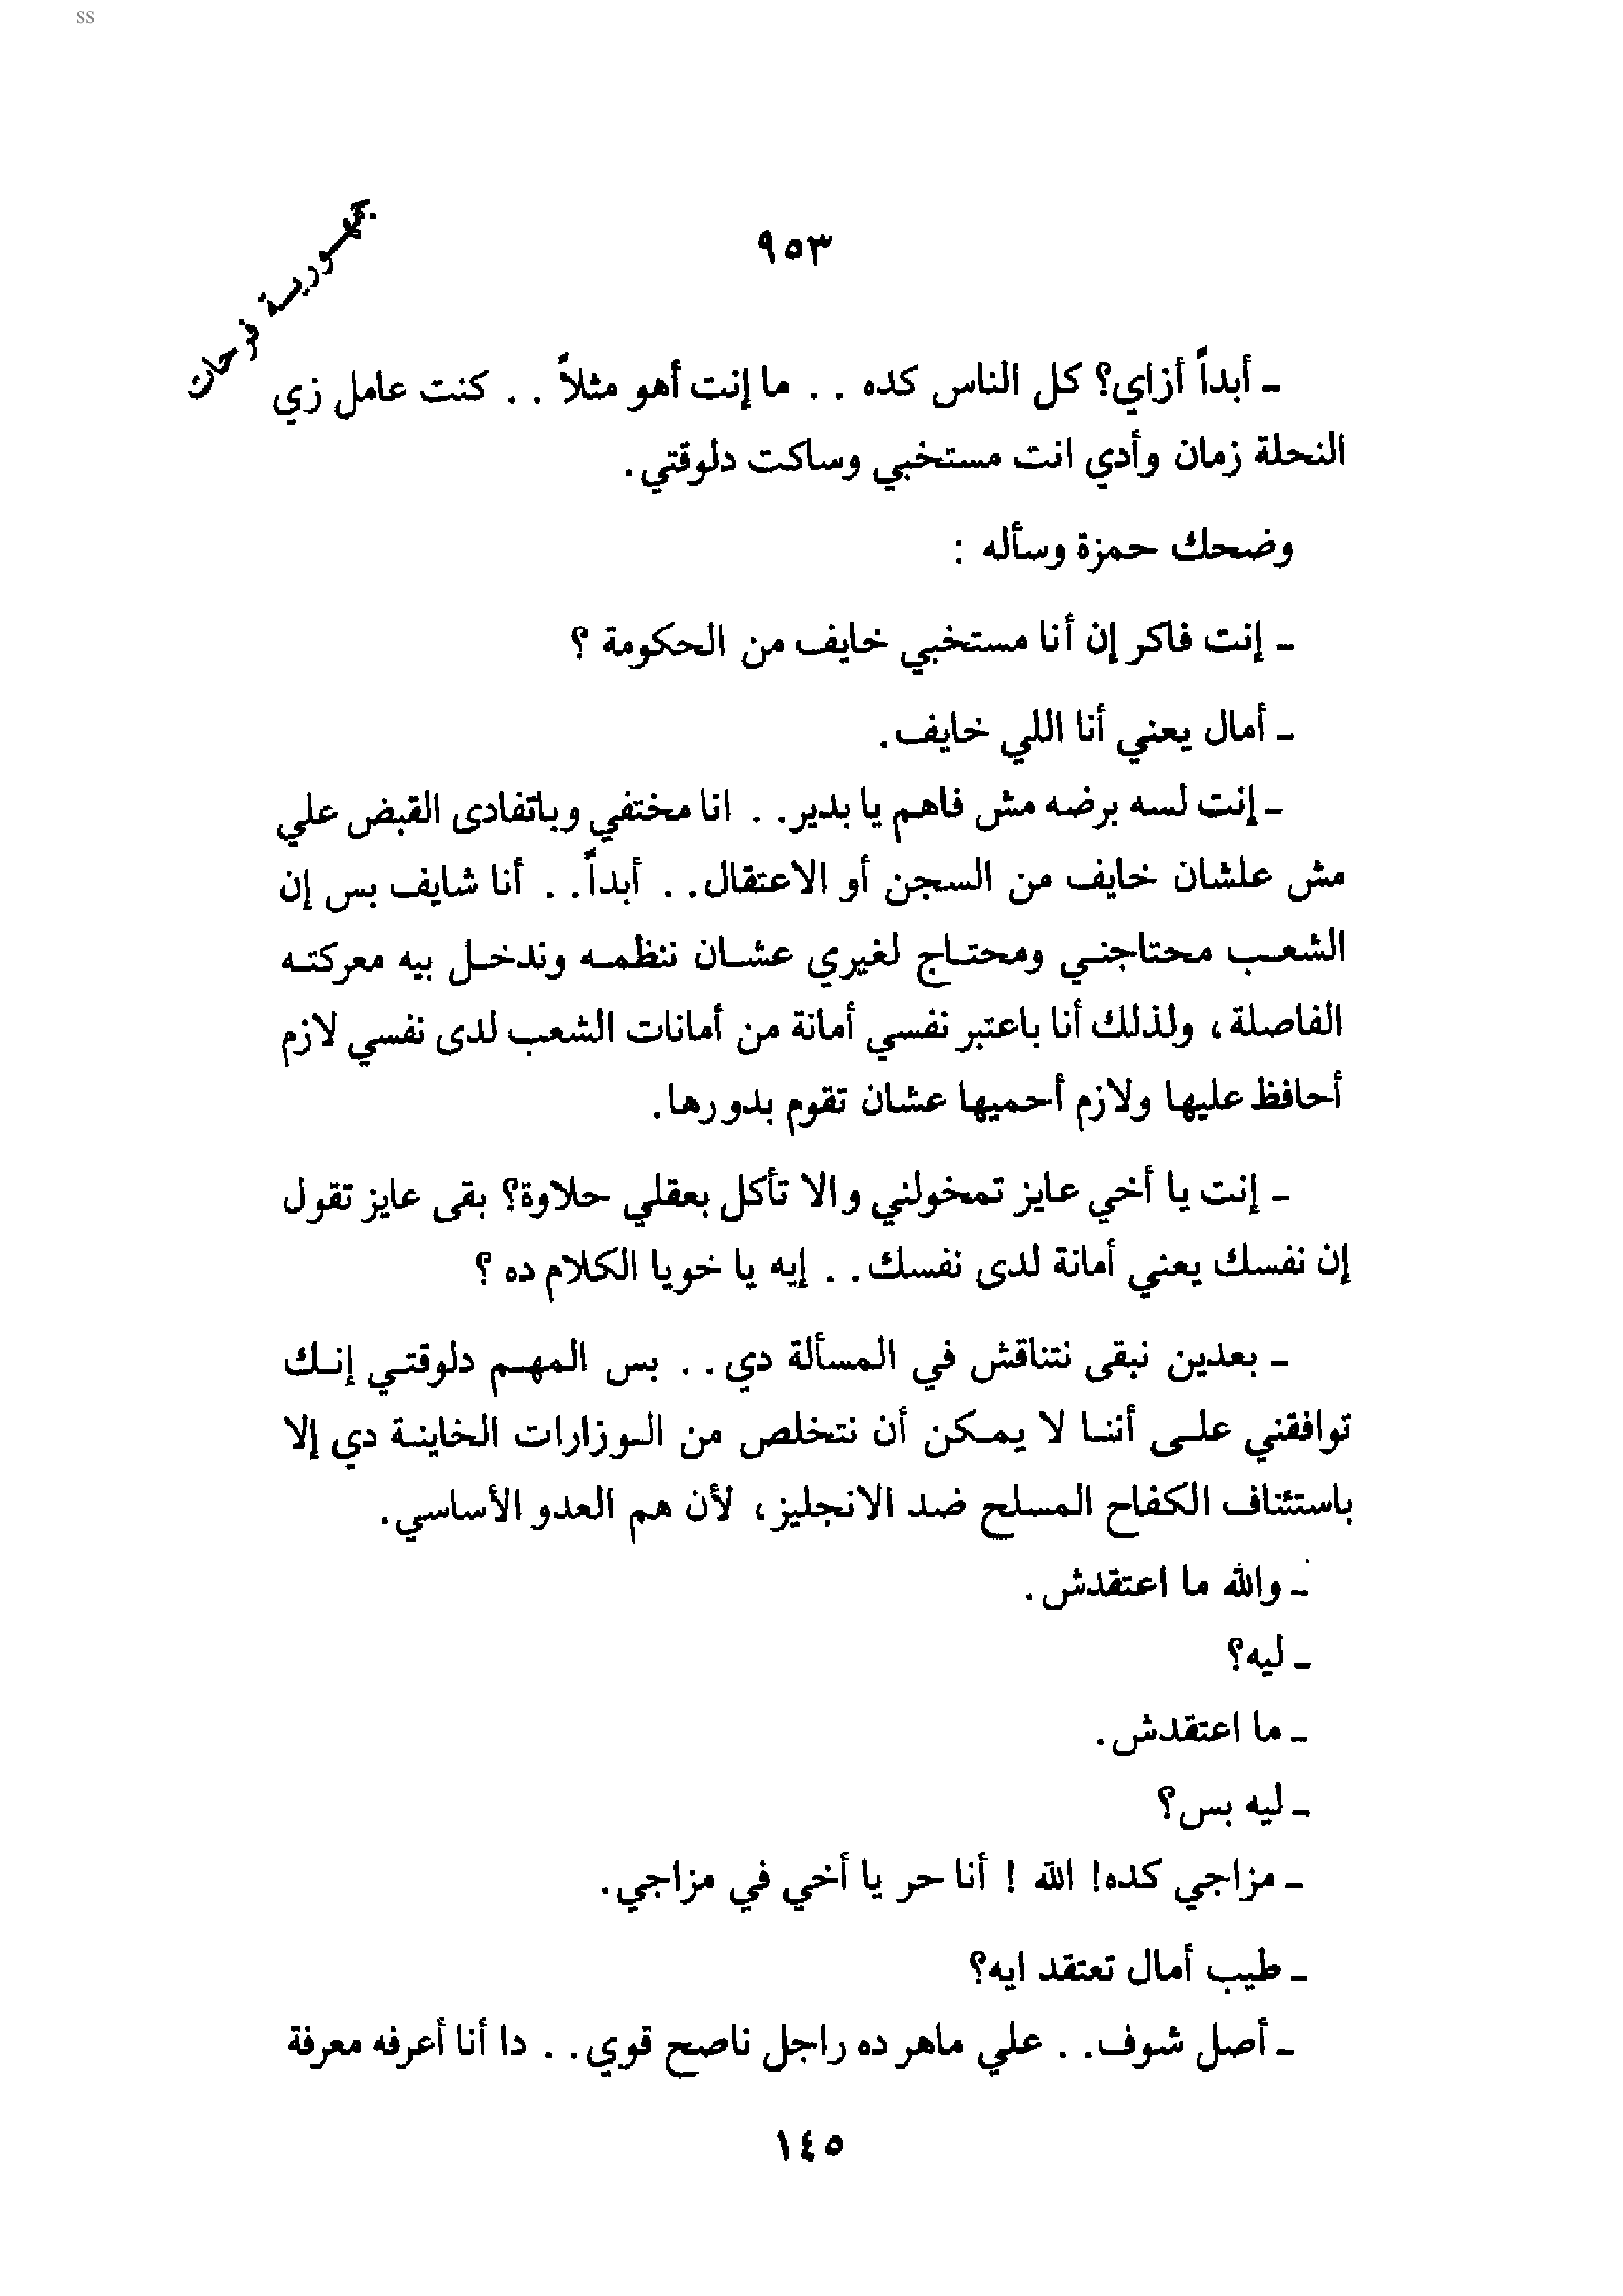 ss
جمهورية فرحات
٩٥٣
ـ أبداً أزاي؟ كل الناس كده . . ما إنت أهو مثلاً . . كنت عامل زي
النحلة زمان وأدي انت مستخبي وساكت دلوقتي.
وضحك حمزة وسأله :
ـ إنت فاكر إن أنا مستخبي خايف من الحكومة ؟
ـ أمال يعني أنا اللي خايف.
ـ إنت لسه برضه مش فاهم يا بدير. . انا مختفي وباتفادى القبض علي
مش علشان خايف من السجن أو الاعتقال. . أبداً. . أنا شايف بس إن
الشعب محتاجني ومحتاج لغيري عشان ننظمه وندخل بيه معركته
الفاصلة، ولذلك أنا باعتبر نفسي أمانة من أمانات الشعب لدى نفسي لازم
أحافظ عليها ولازم أحميها عشان تقوم بدورها.
ـ إنت يا أخي عايز تمخولني والا تأكل بعقلي حلاوة؟ بقى عايز تقول
إن نفسك يعني أمانة لدى نفسك. . إيه يا خويا الكلام ده ؟
ـ بعدين نبقى نتناقش في المسألة دي. . بس المهم دلوقتي إنك
توافقني على أننا لا يمكن أن نتخلص من الوزارات الخاينة دي إلا
باستئناف الكفاح المسلح ضد الانجليز، لأن هم العدو الأساسي.
ـ والله ما اعتقدش.
ـ ليه؟
ـ ما اعتقدش.
ـ ليه بس؟
ـ مزاجي كده! الله ! أنا حر يا أخي في مزاجي.
ـ طيب أمال تعتقد ايه؟
ـ أصل شوف. . علي ماهر ده راجل ناصح قوي. . دا أنا أعرفه معرفة
١٤٥